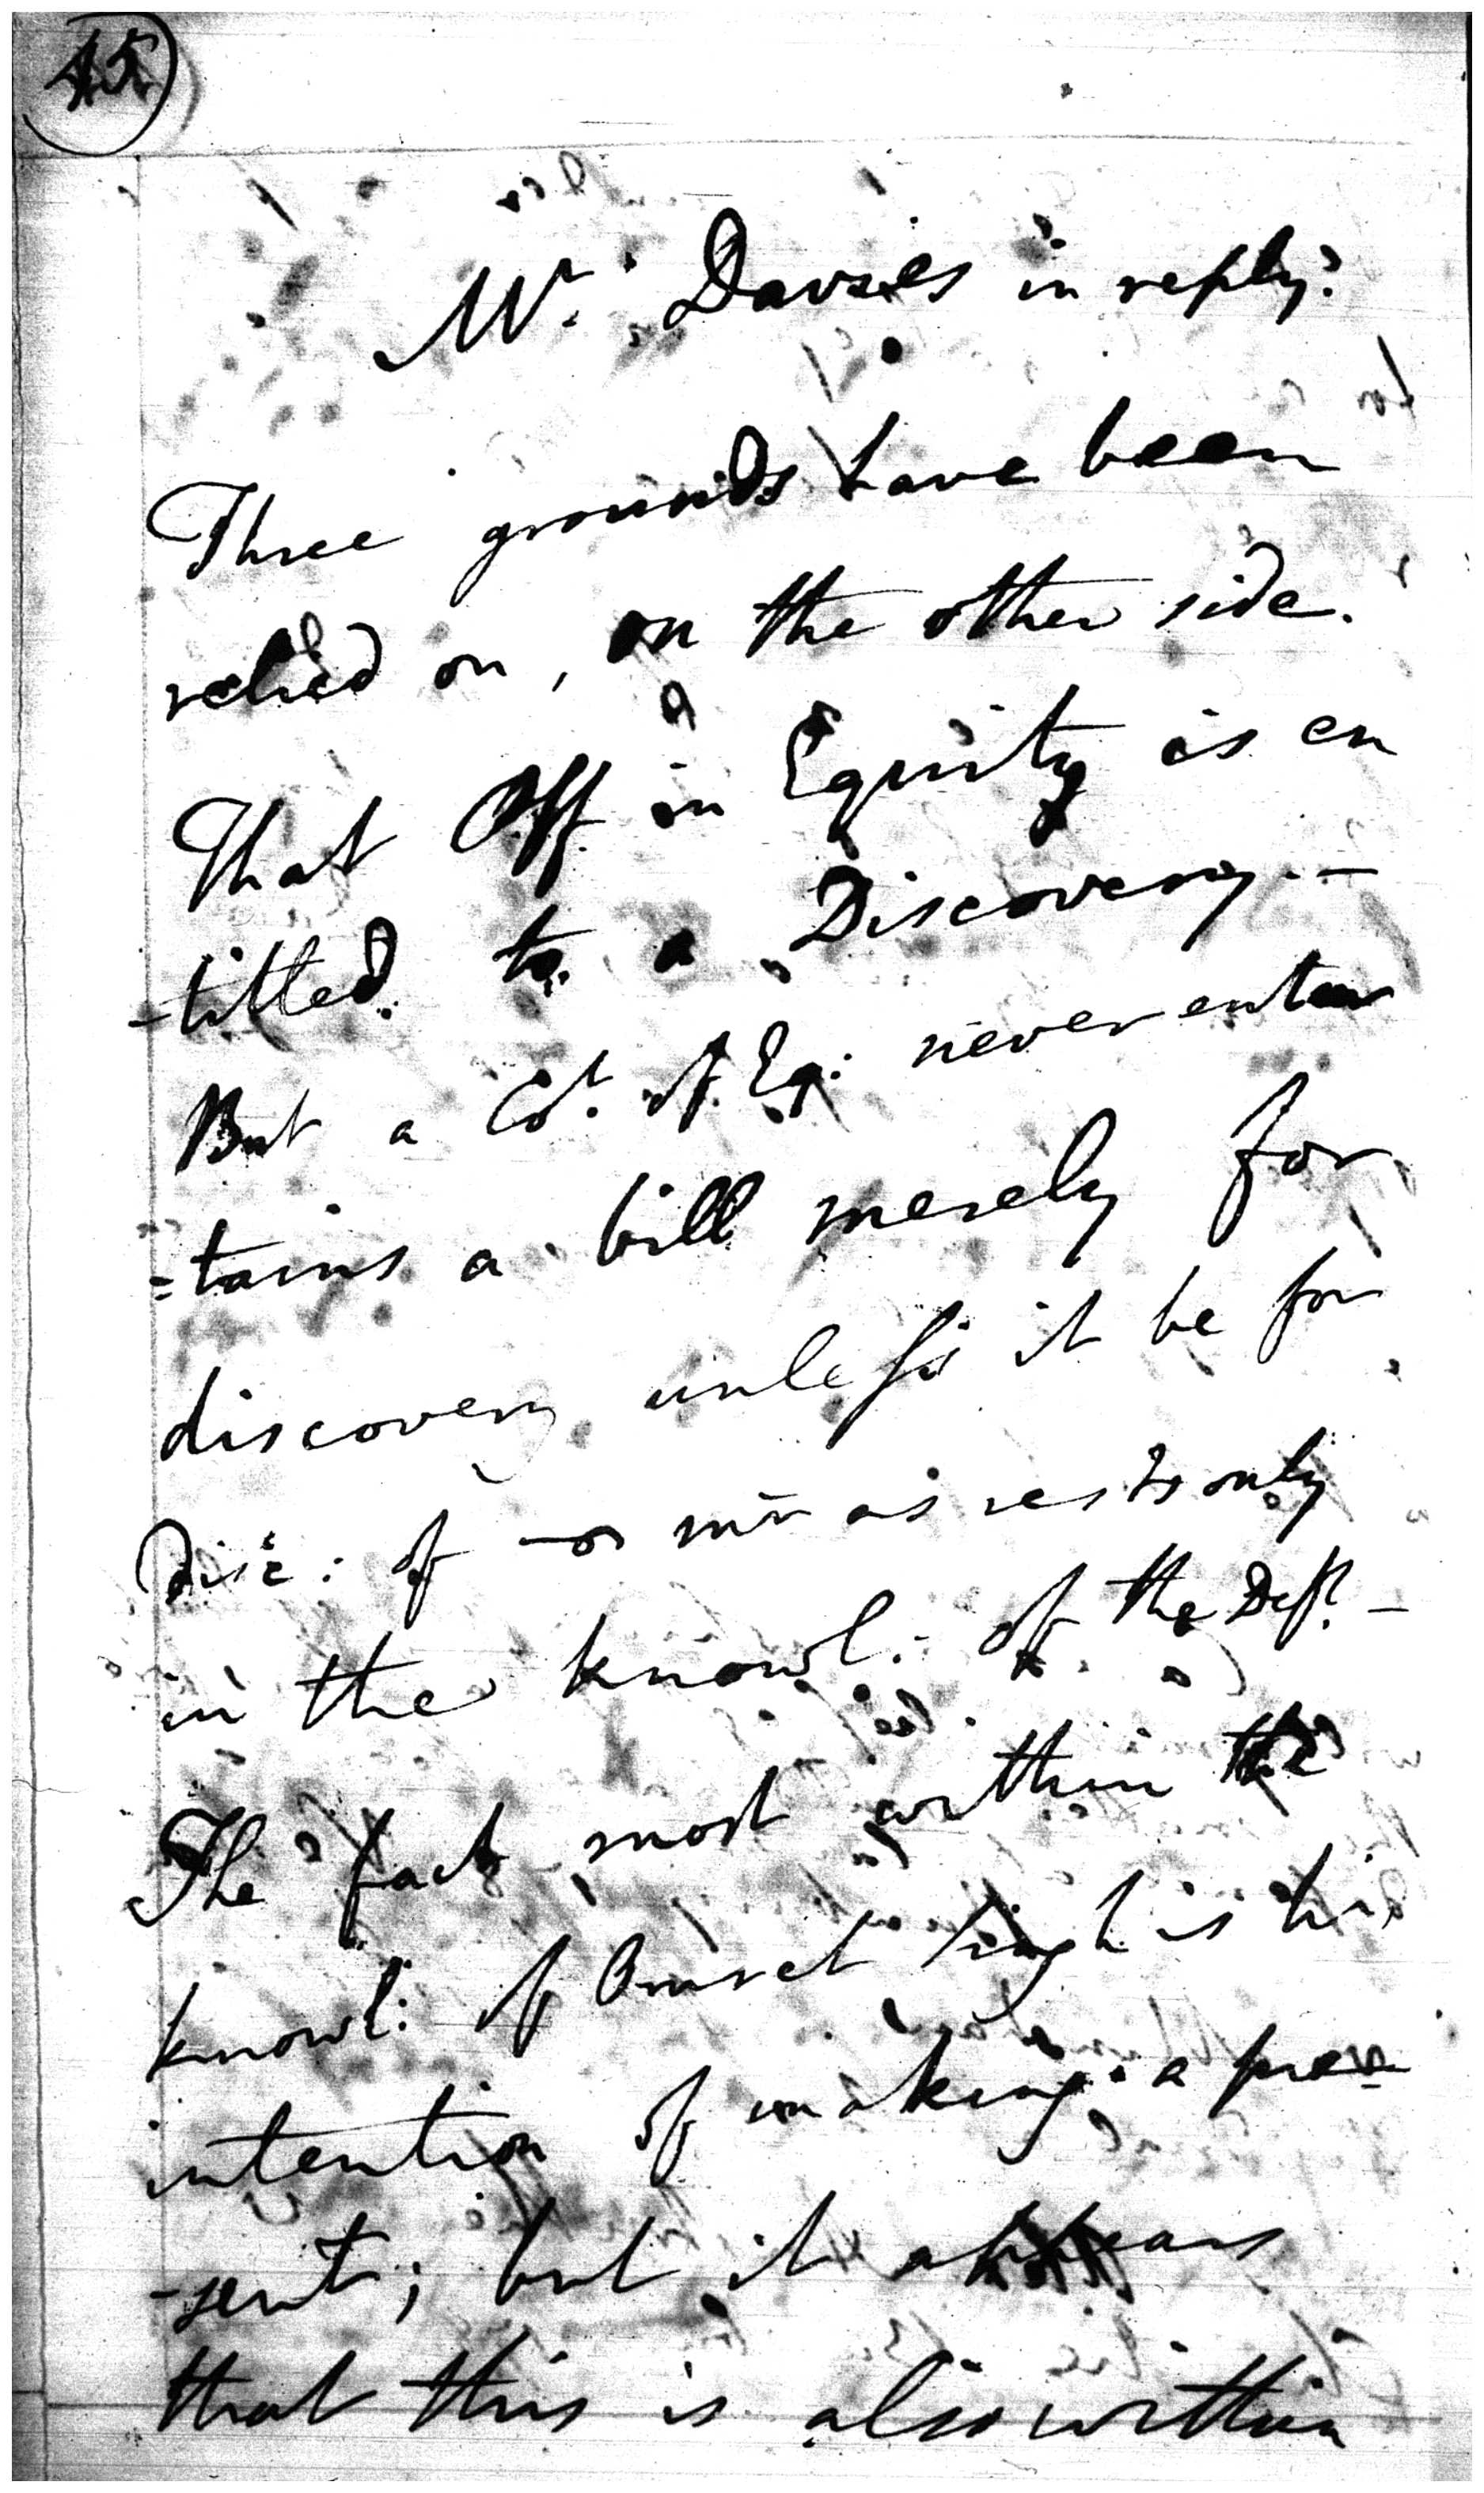 15
Mr. Davies in reply:
Three grounds have been
relied on, on the other side.
That Plff. in Equity is en
-titled to a Discovery. —
But a Ct. of Eq: never enter
-tains a bill merely for
discovery unless it be for
Disc: of as rests only
in the knowl: of the Deft. —
The fact most within the
knowl: of Omrct Sing h is his
intention of making a pre-
-sent; but it appears
that this is also within